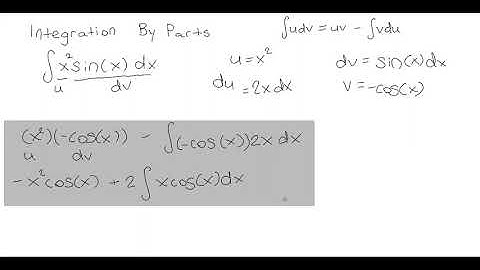 Integration By Parts
∫udv = uv - ∫vdu
∫x²sin(x) dx
u dv
u = x²
du = 2x dx
dv = sin(x)dx
v = -cos(x)
(x²)(-cos(x)) - ∫(-cos(x))2x dx
u dv
-x²cos(x) + 2∫xcos(x)dx